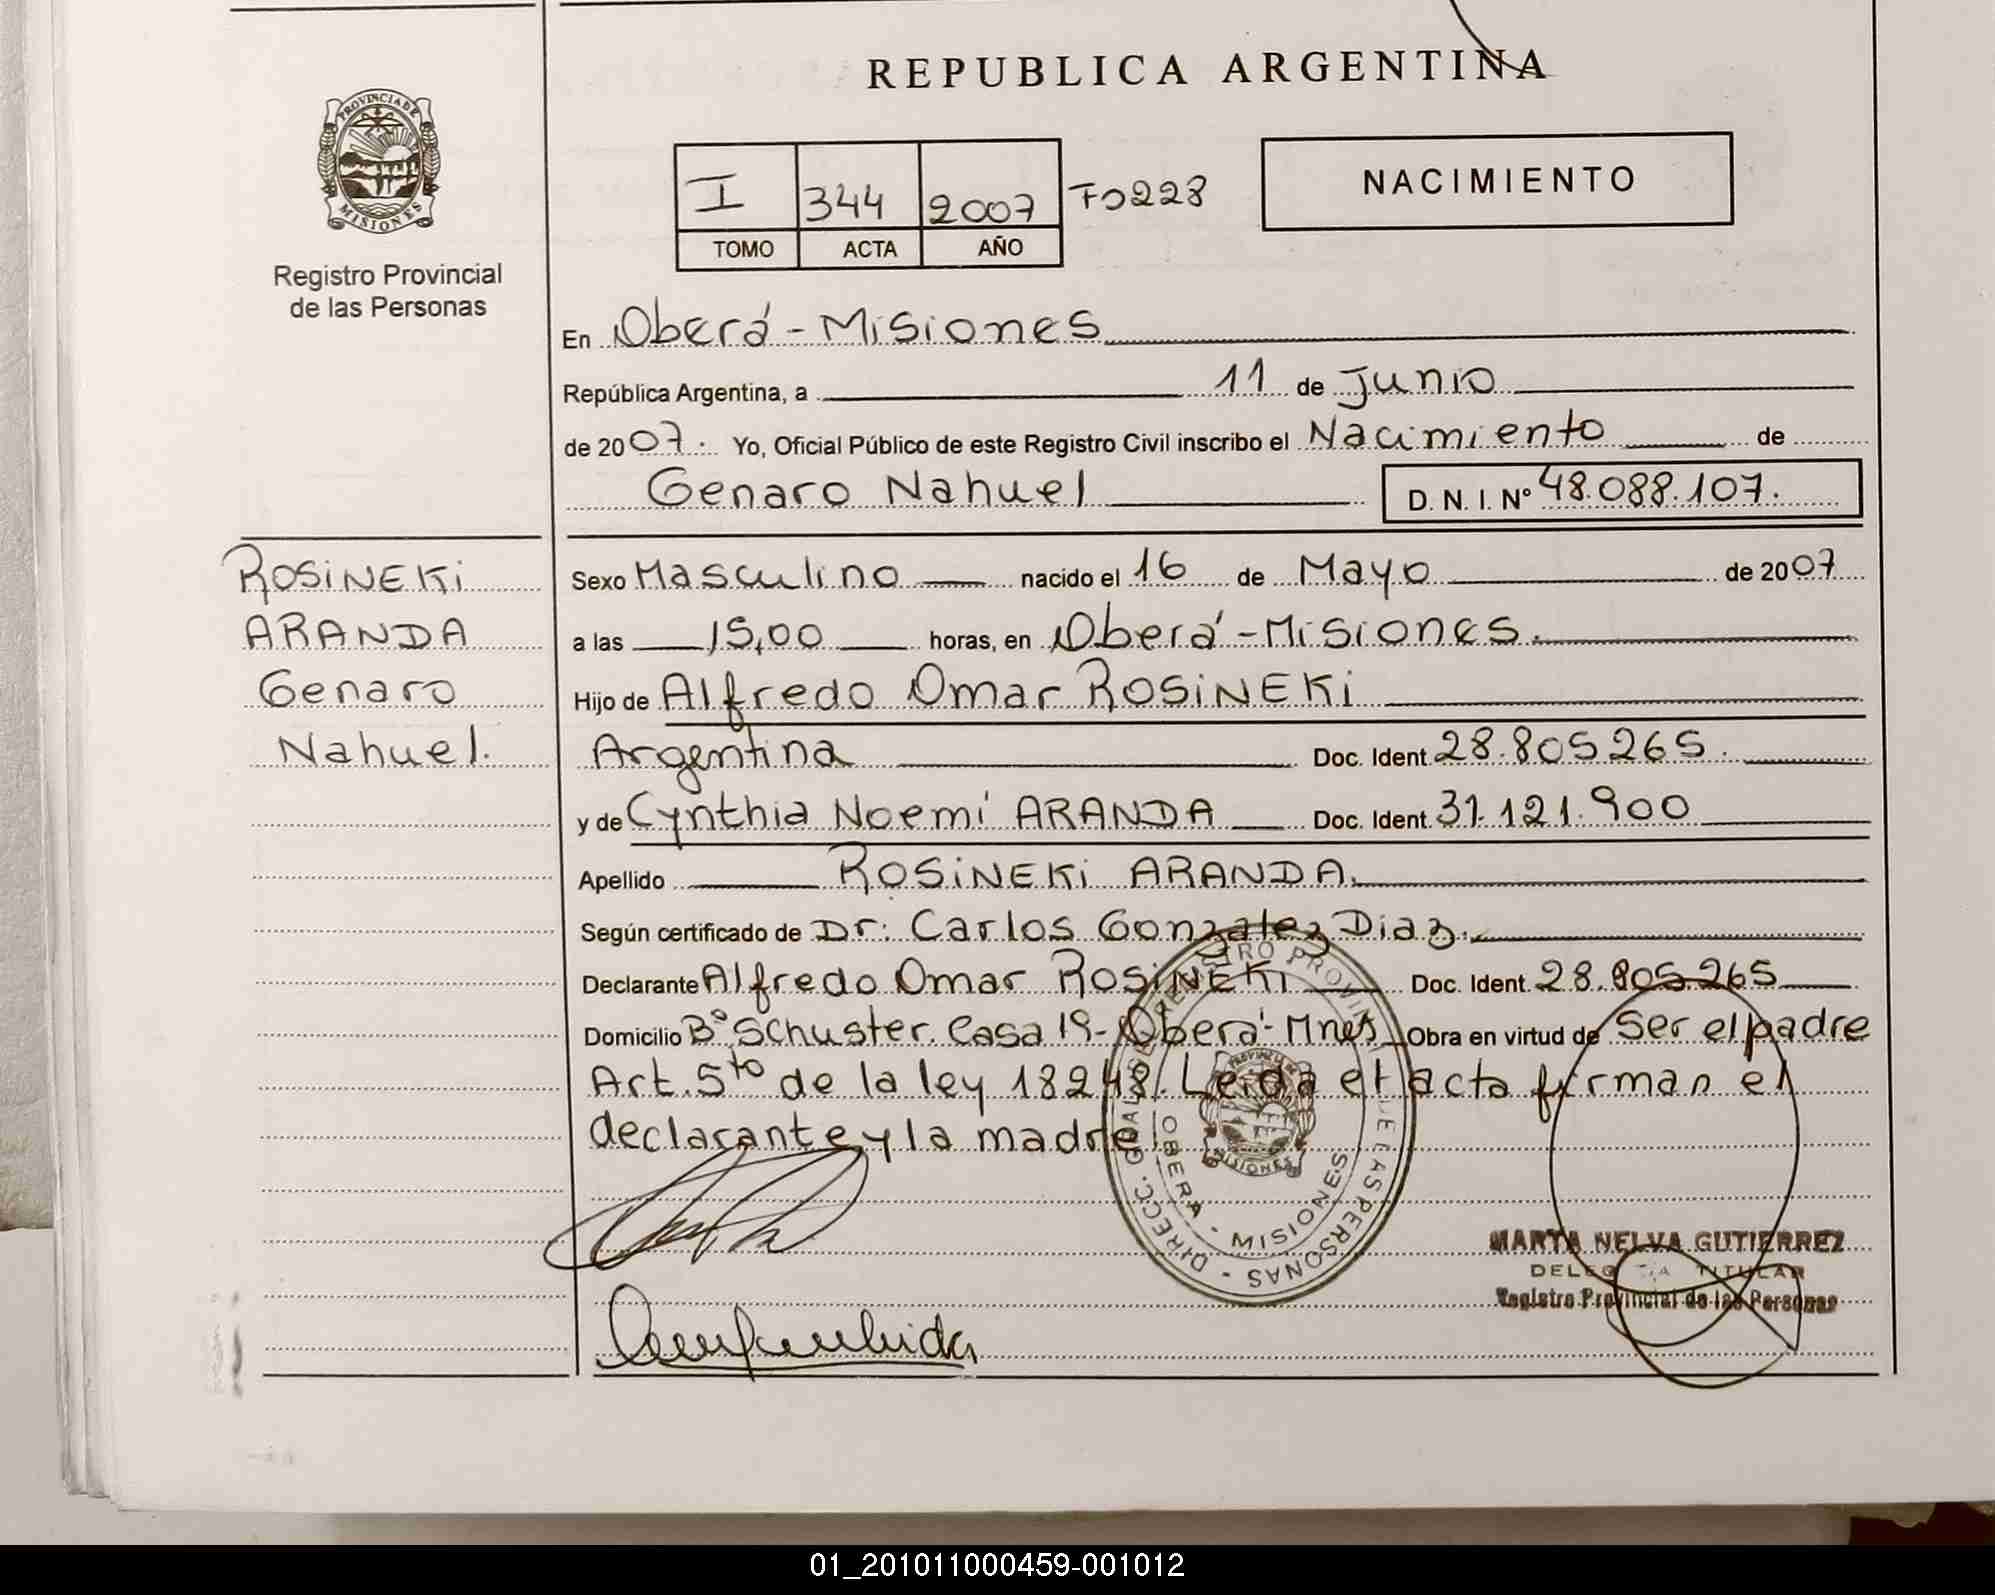 REPUBLICA ARGENTINA
PROVINCIA DE
MISIONES
Registro Provincial
de las Personas
I 344 2007 Fo 228
TOMO ACTA AÑO
NACIMIENTO
En Oberá - Misiones
República Argentina, a 11 de Junio
de 2007. Yo, Oficial Público de este Registro Civil inscribo el Nacimiento de
Genaro Nahuel D. N. I. Nº 48.088.107.
ROSiNEKi
ARANDA
Genaro
Nahuel.
Sexo Masculino nacido el 16 de Mayo de 2007
a las 15,00 horas, en Oberá - Misiones.
Hijo de Alfredo Omar ROSiNEKi
Argentina Doc. Ident. 28.805265.
y de Cynthia Noemí ARANDA Doc. Ident. 31.121.900
Apellido ROSiNEKi ARANDA.
Según certificado de Dr: Carlos Gonzalez Diaz.
Declarante Alfredo Omar ROSiNEKi Doc. Ident. 28.805.265
Domicilio Bº Schuster. Casa 19- Oberá- Mnes Obra en virtud de Ser el padre
Art. 5to de la ley 18248. Leida el acta firman el
declarante y la madre.
DIRECC. GRAL. DE REGISTRO PROVINCIAL DE LAS PERSONAS
OBERA - MISIONES
MARTA NELVA GUTIERREZ
DELEGADA TITULAR
Registro Provincial de las Personas
01_201011000459-001012